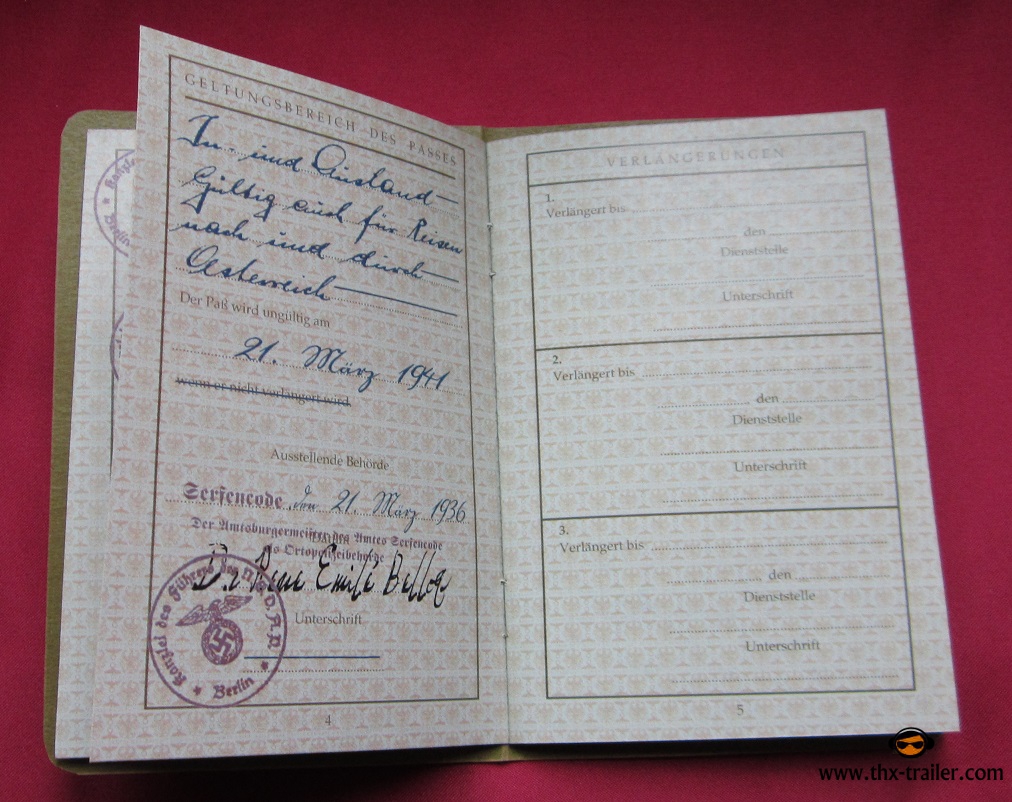 GELTUNGSBEREICH DES PASSES
In- und Ausland—
Gültig auch für Reisen
nach und durch—
Oesterreich—
Der Paß wird ungültig am
21. März 1941
wenn er nicht verlängert wird.
Ausstellende Behörde
Serfencode, den 21. März 1936
Der Amtsburgermeister des Amtes Serfencode
als Ortspolizeibehorde
Dr. Rene Emile Belloq
Unterschrift
Kanzlei des Führers der N.S.D.A.P.
Berlin
4
Kanzlei
Berlin
VERLÄNGERUNGEN
1.
Verlängert bis
den
Dienststelle
Unterschrift
2.
Verlängert bis
den
Dienststelle
Unterschrift
3.
Verlängert bis
den
Dienststelle
Unterschrift
5
www.thx-trailer.com